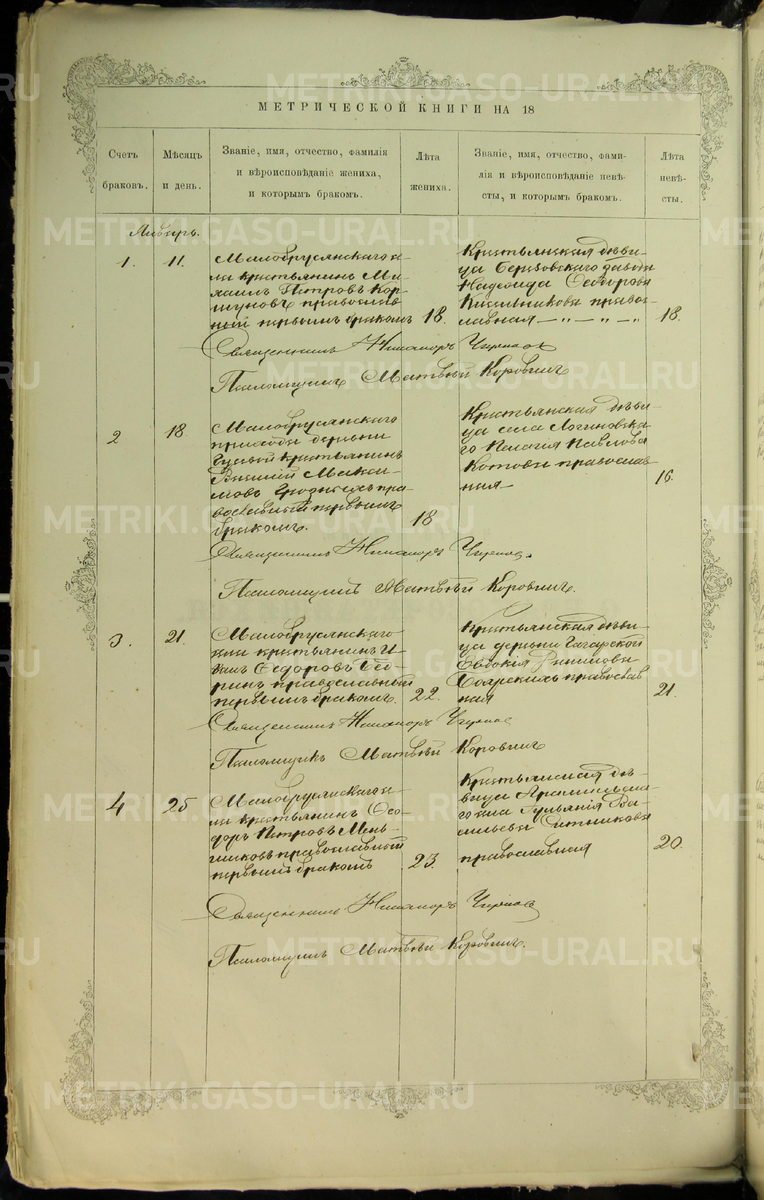 МЕТРИЧЕСКОЙ КНИГИ НА 18
Счетъ браковъ.
Мѣсяцъ и день.
Званіе, имя, отчество, фамилія
и вѣроисповѣданіе жениха,
и которымъ бракомъ.
Лѣта жениха.
Званіе, имя, отчество, фами-
лія и вѣроисповѣданіе невѣ-
сты, и которымъ бракомъ.
Лѣта невѣ-
сты.
Январь.
1. 11.
Малобруслянскаго се-
ла крестьянинъ Ми-
хаилъ Петровъ Кор-
шуновъ православ
ный первымъ бракомъ 18.
Крестьянская дѣви-
ца Березовскаго завода
Надежда Ѳедорова
православная 18.
Священникъ Никаноръ
Псаломщикъ Матвѣй Коровинъ
2 18.
Малобруслянскаго
прихода деревни
Гусевой крестьянинъ
Василій Макси-
мовъ православный первымъ
бракомъ. 18
Крестьянская дѣви-
ца села Логиновска-
го Пелагія Павлова
Котова православ
ная 16.
Священникъ Никаноръ
Псаломщикъ Матвѣй Коровинъ.
3. 21.
Малобруслянскаго
села крестьянинъ И-
Ѳедоровъ
православный
первымъ бракомъ. 22.
Крестьянская дѣви-
ца деревни Гагарской
Евдокія
Боярскихъ православ
ная 21.
Священникъ Никаноръ
Псаломщикъ Матвѣй Коровинъ
4 25
Малобруслянскаго се-
ла крестьянинъ Ѳео-
доръ Петровъ Мень-
шиковъ православный
первымъ бракомъ 23.
Крестьянская дѣ-
вица
села Ва-
сильева Ситникова
православная 20.
Священникъ Никаноръ
Псаломщикъ Матвѣй Коровинъ.
METRIKI.GASO-URAL.RU